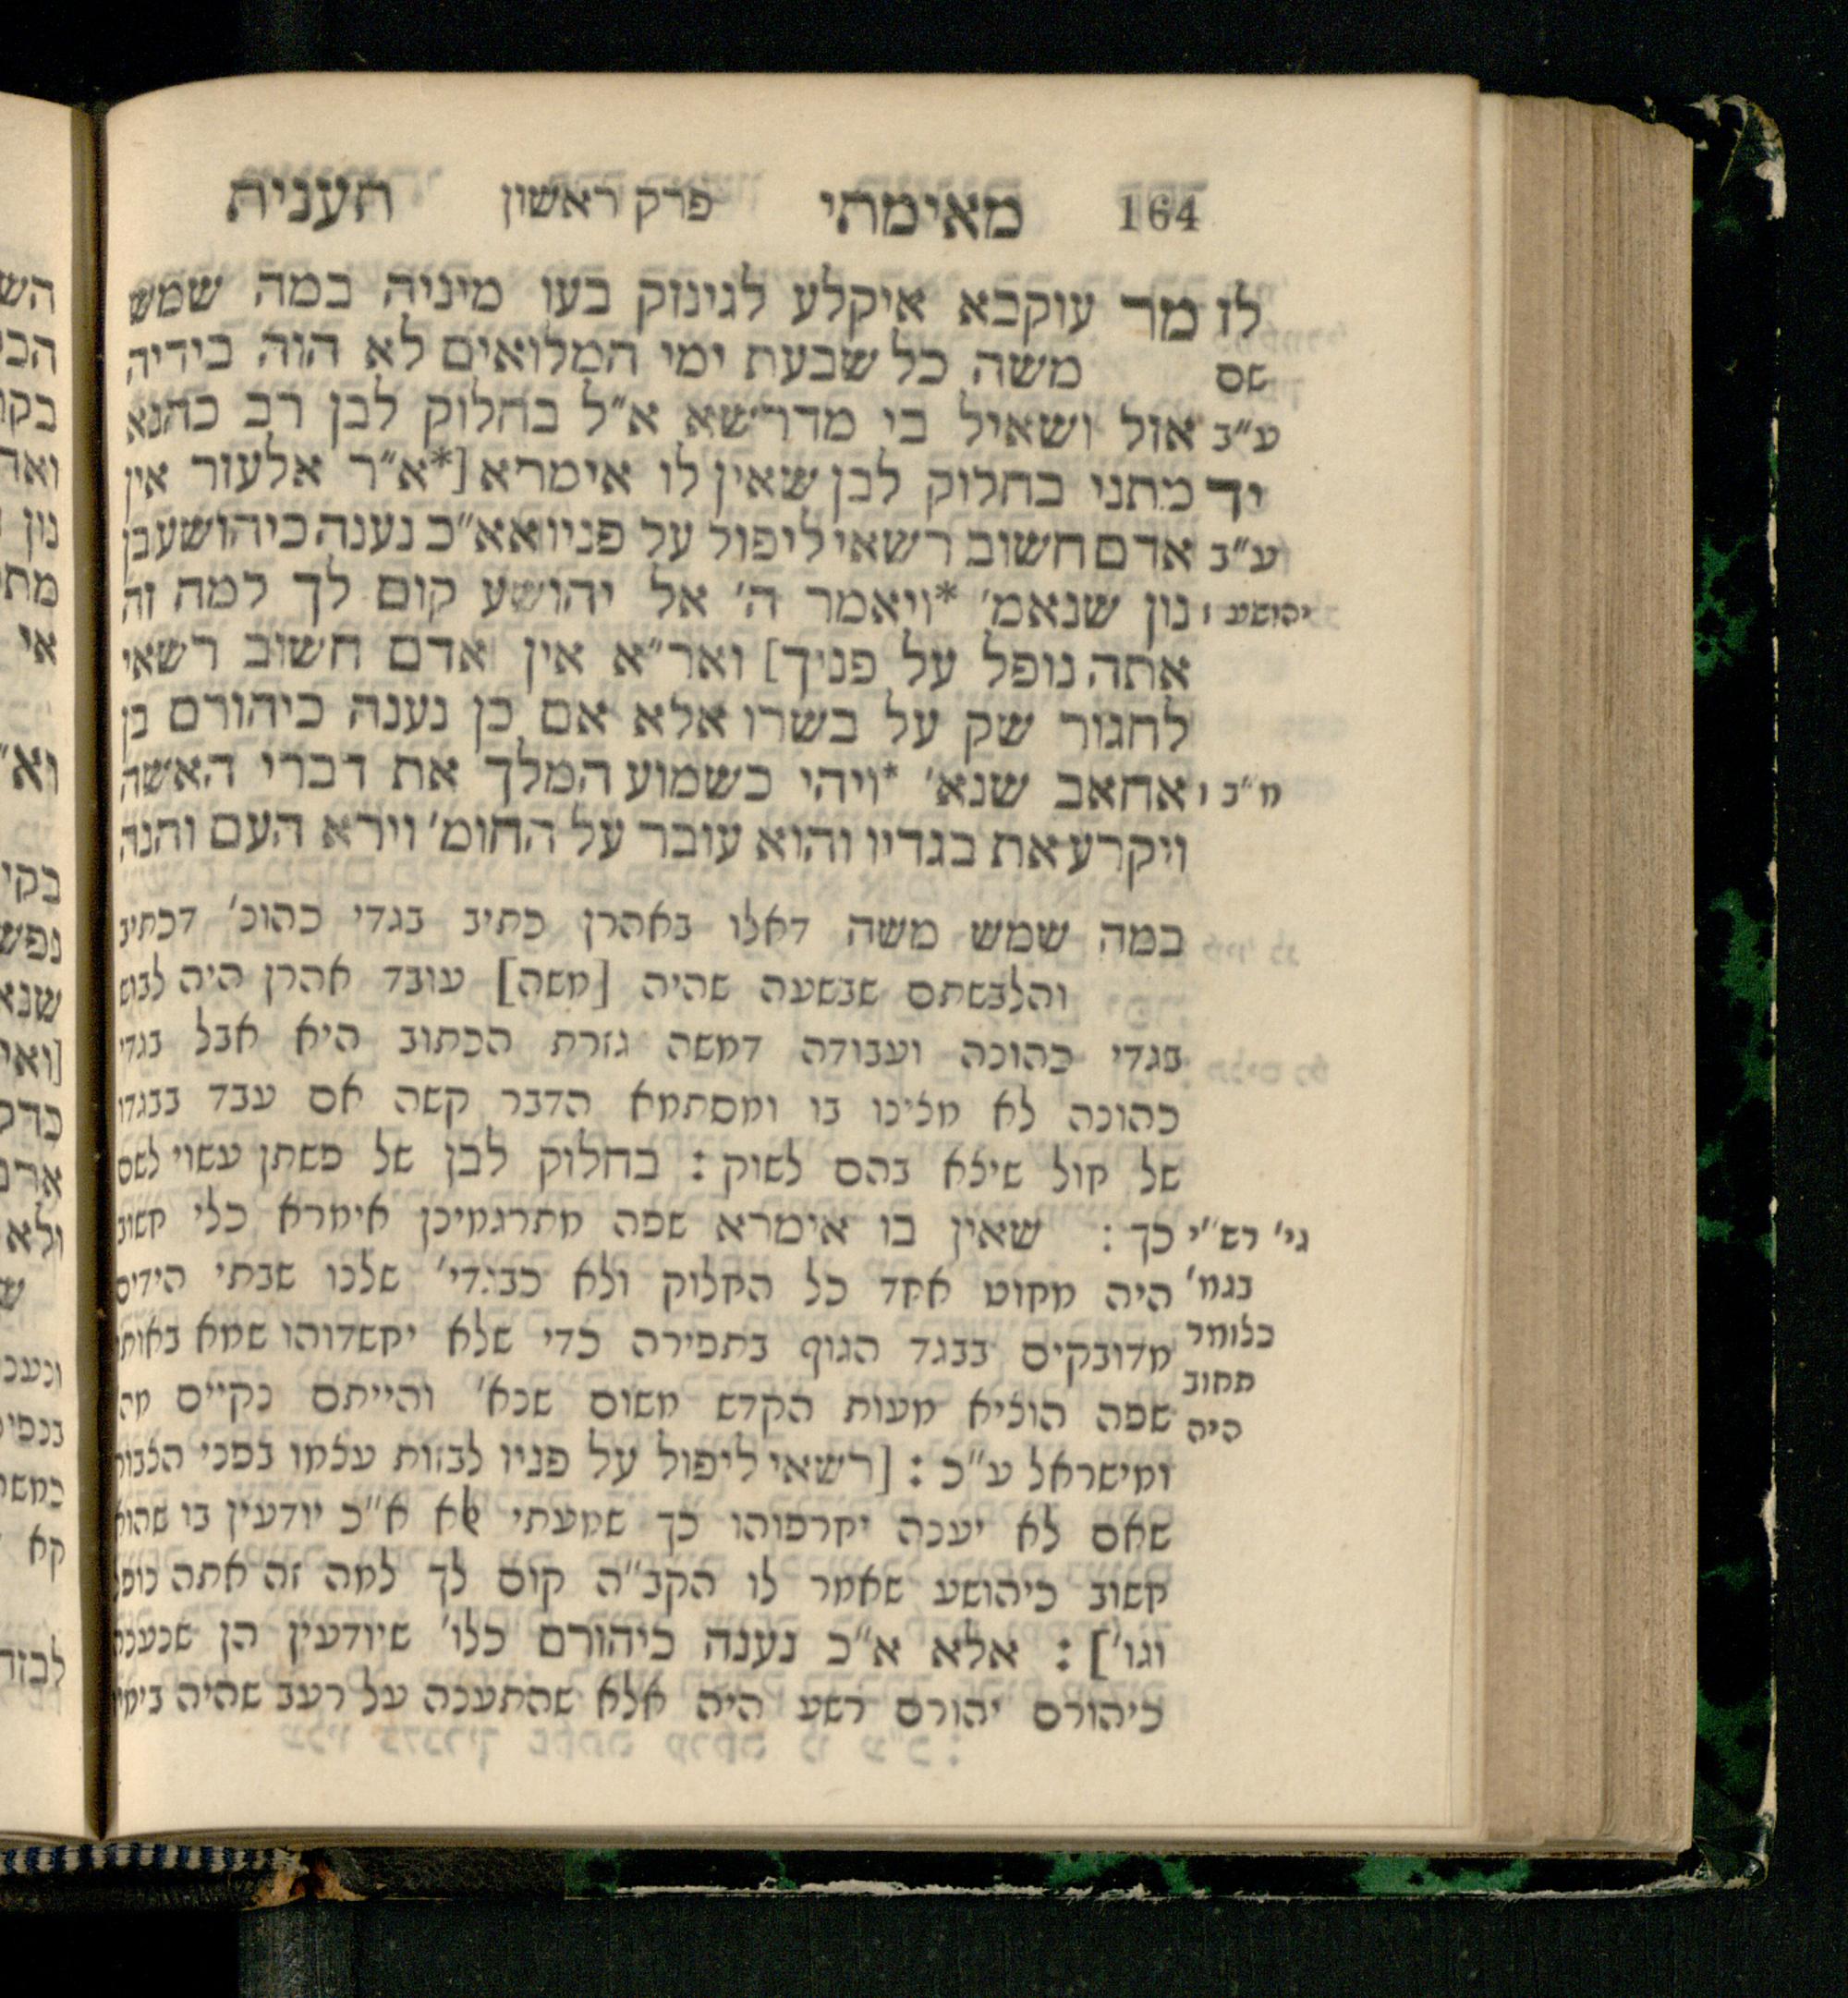 164 מאימתי פרק ראשון תענית
לז מר עוקבא איקלע לגינזק בעו מיניה במה שמש
שם משה כל שבעת ימי המלואים לא הוה בידיה
ע״ב אזל ושאיל בי מדרשא א״ל בחלוק לבן רב כהנא
יד מתני בחלוק לבן שאין לו אימרא [*א״ר אלעזר אין
ע״ב אדם חשוב רשאי ליפול על פניו אא״כ נענה כיהושע בן
יהושע ז נון שנאמ׳ *ויאמר ה׳ אל יהושע קום לך למה זה
אתה נופל על פניך] ואר״א אין אדם חשוב רשאי
לחגור שק על בשרו אלא אם כן נענה כיהורם בן
מ״ב ו אחאב שנא׳ *ויהי כשמוע המלך את דברי האשה
ויקרע את בגדיו והוא עובר על החומ׳ וירא העם והנה
במה שמש משה דאלו באהרן כתיב בגדי כהונ׳ דכתיב
והלבשתם שבשעה שהיה [משה] עובד אהרן היה לבוש
בגדי כהונה ועבודה דמשה גזרת הכתוב היא אבל בגדי
כהונה לא מצינו בו ומסתמא הדבר קשה אם עבד בבגדו
של חול שיצא בהם לשוק : בחלוק לבן של פשתן עשוי לשם
גי׳ רש״י כך : שאין בו אימרא שפה מתרגמינן אימרא כלי חשוב
בגמ׳ היה מחוט אחד כל החלוק ולא כבגדי׳ שלנו שבתי הידים
כלומר מדובקים בבגד הגוף בתפירה כדי שלא יחשדוהו שמא באותו
תחוב שפה הוציא מעות הקדש משום שנא׳ והייתם נקיים מה׳
היה
ומישראל ע״כ : [רשאי ליפול על פניו לבזות עצמו בפני הצבור
שאם לא יענה יחרפוהו כך שמעתי אלא א״כ יודעין בו שהוא
חשוב כיהושע שאמר לו הקב״ה קום לך למה זה אתה נופל
וגו׳] : אלא א״כ נענה כיהורם כלו׳ שיודעין הן שנענה
כיהורם יהורם רשע היה אלא שהתענה על רעב שהיה בימיו